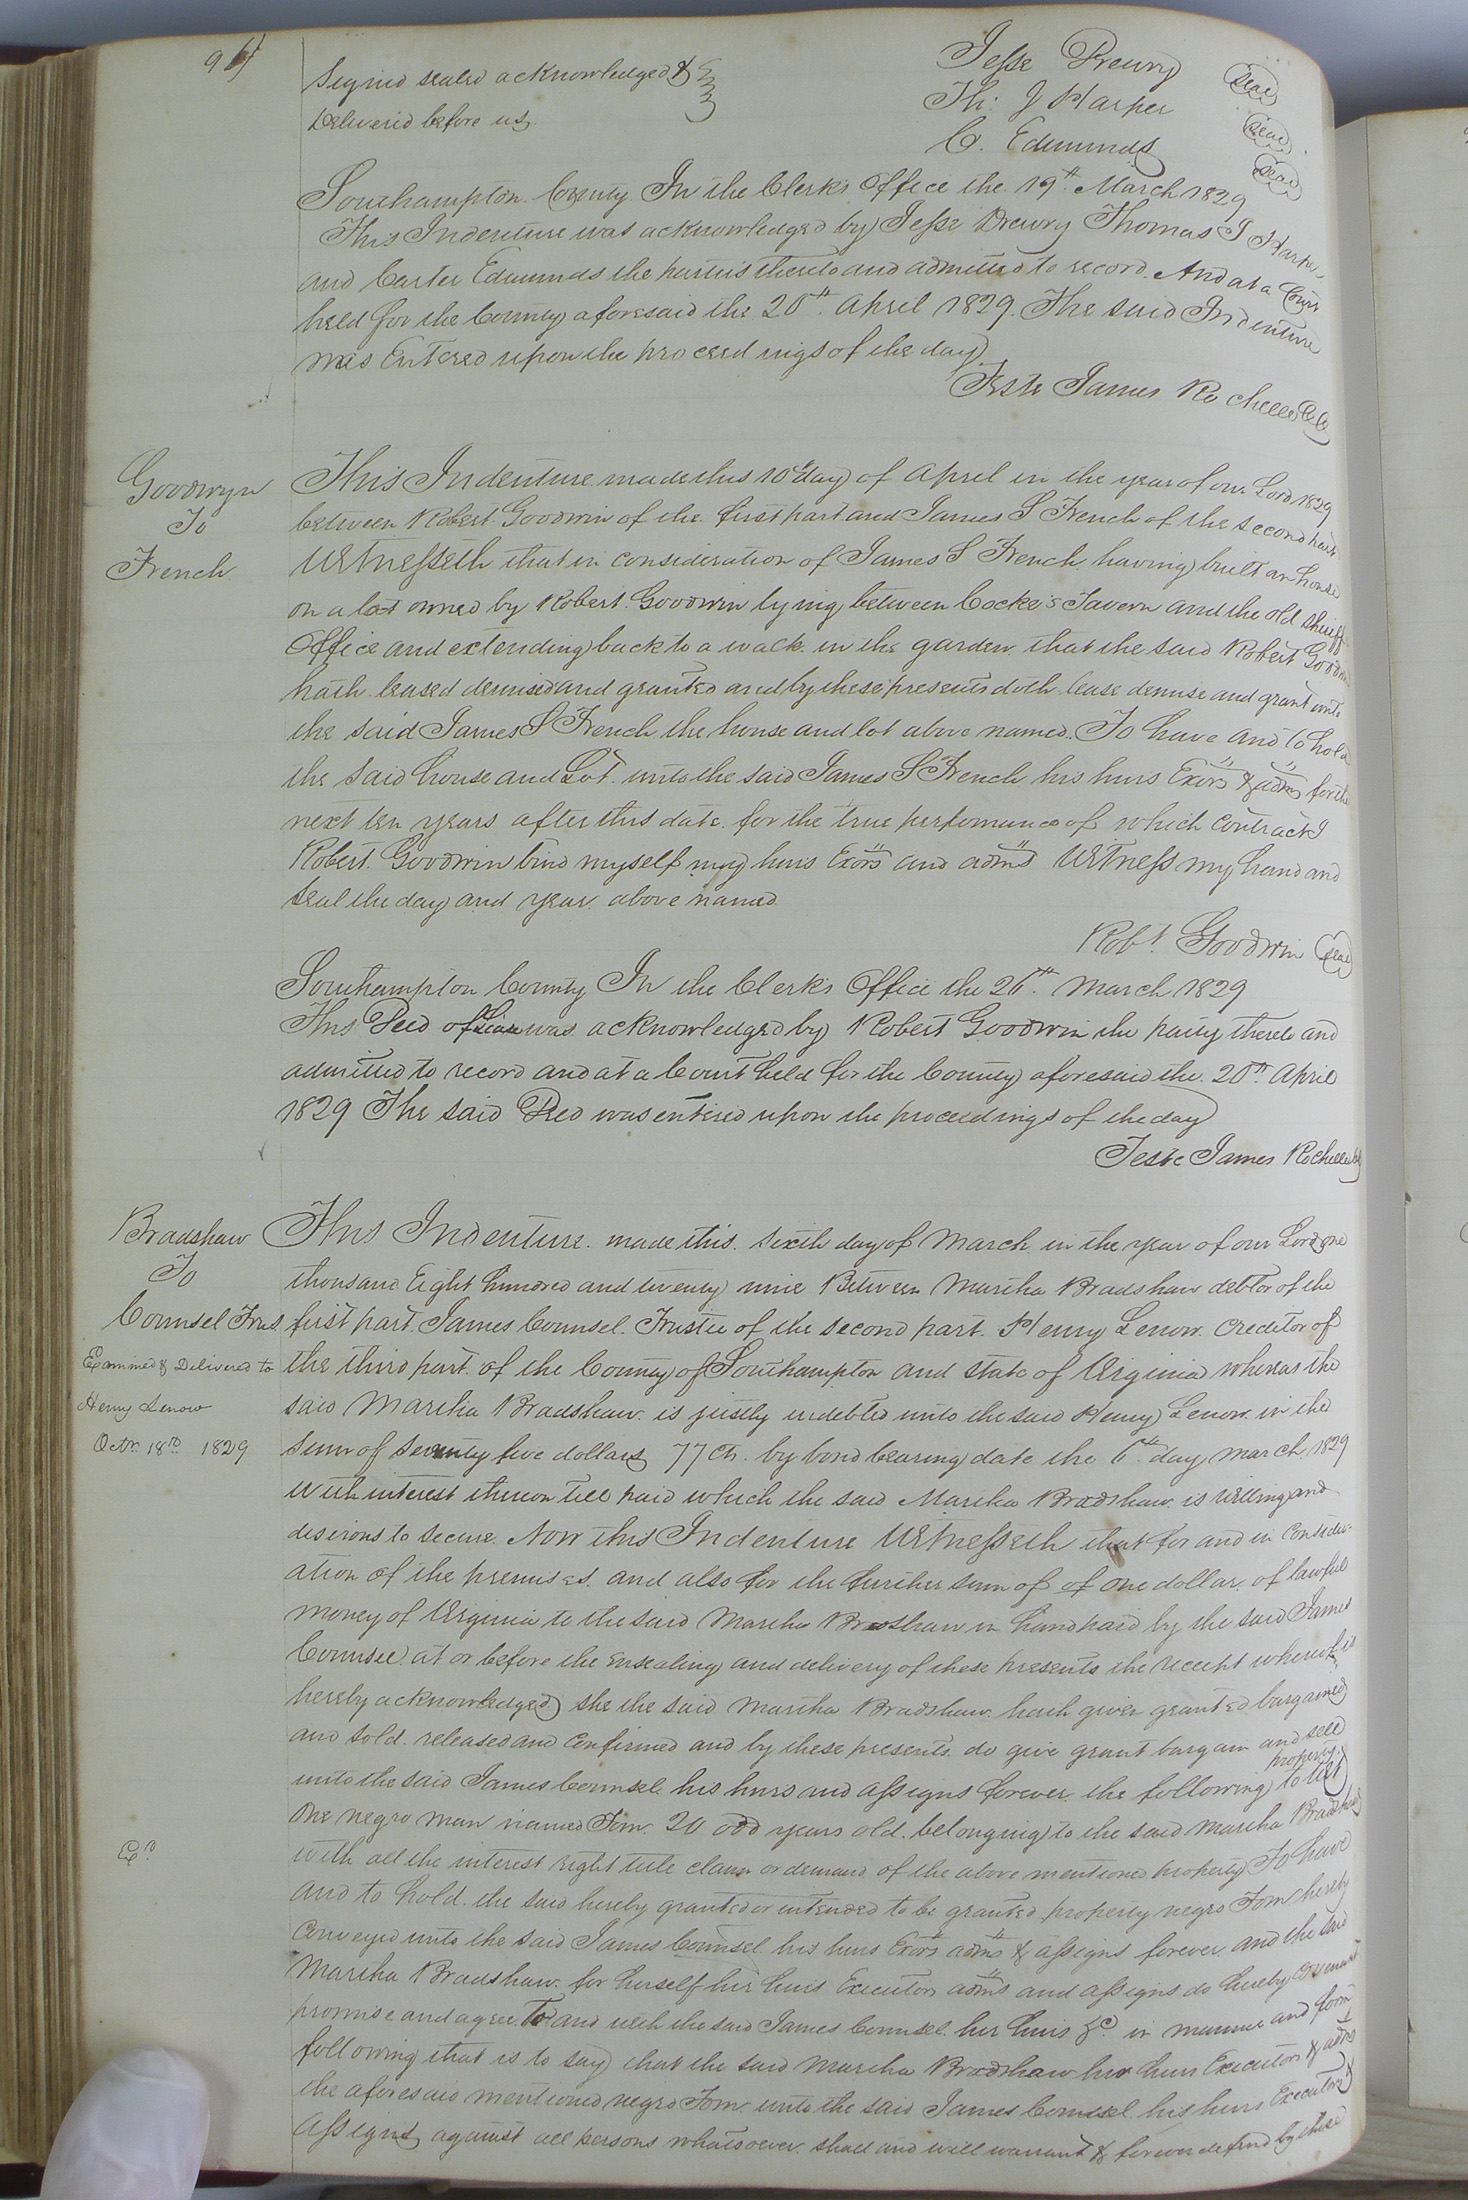 Signed sealed acknowledged &
Delivered before us
Jesse Drewry Seal
Th: J Harper Seal
C. Edmunds Seal
Southampton County In the Clerk's Office the 19th March 1829
This Indenture was acknowledged by Jesse Drewry Thomas J Harper
and Carter Edmunds the parties thereto and admitted to record. And at a Court
held for the County aforesaid the 20th April 1829. The said Indenture
was Entered upon the proceedings of the day
Teste James Rochelle
Goodwyn
To
French
This Indenture made this 10 day of April in the year of our Lord 1829
between Robert Goodwin of the first part and James S French of the second part
Witnesseth that in consideration of James S French having built an house
on a lot owned by Robert Goodwin lying between Cocke's Tavern and the old Sheriff
Office and extending back to a walk in the garden that the said Robert Goodwin
hath leased demised and granted and by these presents doth lease demise and grant unto
the said James S French the house and lot above named. To have and to hold
the said house and Lot unto the said James S French his heirs Exors & adms for the
next ten years after this date for the true performance of which contract I
Robert Goodwin bind myself my heirs Exors and adms Witness my hand and
seal the day and year above named
Robt Goodwin Seal
Southampton County In the Clerk's Office the 26th March 1829
This Deed of was acknowledged by Robert Goodwin the party thereto and
admitted to record and at a Court held for the County aforesaid the 20th April
1829 The said Deed was entered upon the proceedings of the day
Teste James Rochelle
Bradshaw
To
Counsel Trus
Examined & Delivered to
Henry Lenow
Octr 18th 1829
This Indenture made this sixth day of March in the year of our Lord one
thousand Eight hundred and twenty nine Between Martha Bradshaw debtor of the
first part James Counsel Trustee of the second part Henry Lenow Creditor of
the third part of the County of Southampton and state of Virginia whereas the
said Martha Bradshaw is justly indebted unto the said Henry Lenow in the
sum of seventy five dollars 77 cts. by bond bearing date the 6th day March 1829
with interest thereon till paid which the said Martha Bradshaw is willing and
desirous to secure. Now this Indenture Witnesseth that for and in consider-
ation of the premises and also for the further sum of of one dollar of lawful
money of Virginia to the said Martha Bradshaw in hand paid by the said James
Counsel at or before the ensealing and delivery of these presents the receipt whereof is
hereby acknowledged she the said Martha Bradshaw hath given granted bargained
and sold released and confirmed and by these presents do give grant bargain and sell
unto the said James Counsel his heirs and assigns forever the following property to wit
One negro man named Tom 20 odd years old belonging to the said Martha Bradshaw
with all the interest right title claim or demand of the above mentioned property To have
and to hold the said hereby granted or intended to be granted property negro Tom hereby
Conveyed unto the said James Counsel his heirs Exors adms & assigns forever and the said
Martha Bradshaw for herself her heirs Executors adms and assigns do hereby covenant
promise and agree To and with the said James Counsel his heirs &c in manner and form
following that is to say that the said Martha Bradshaw her heirs Executors & adms
the aforesaid mentioned negro Tom unto the said James Counsel his heirs Executors &
Assigns against all persons whatsoever shall and will warrant & forever defend by these